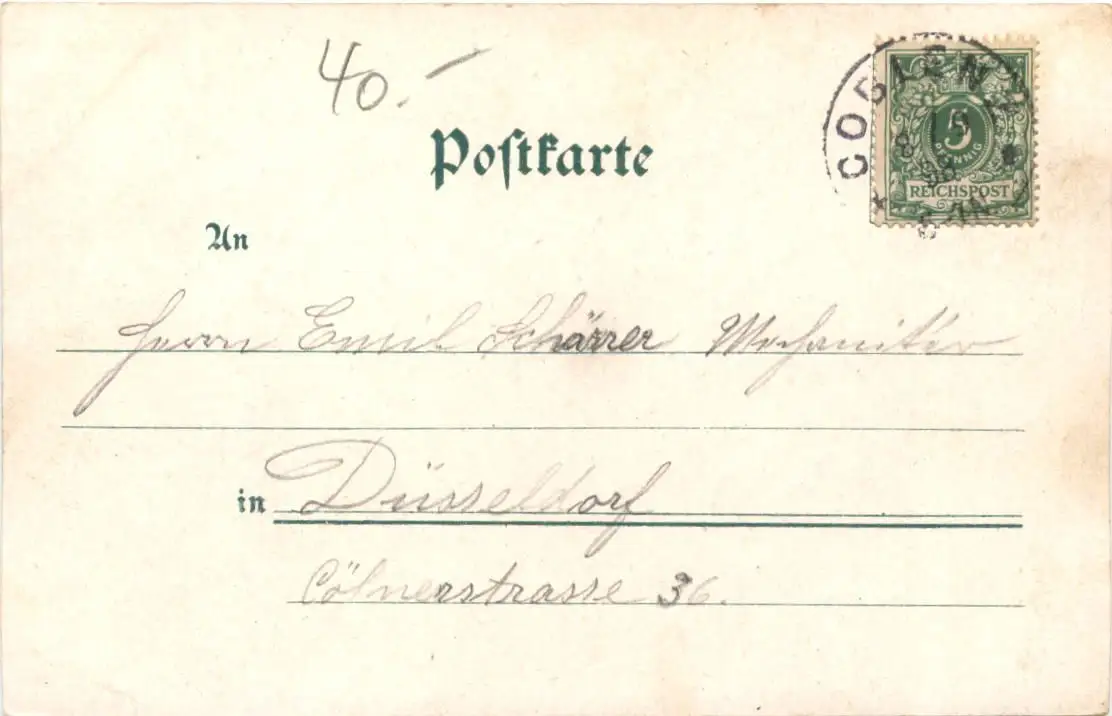 40.-
Postkarte
COBLENZ
5
PFENNIG
REICHSPOST
An
Herrn Emil Schärrer Mechaniker
in Düsseldorf
Cölnerstrasse 36.